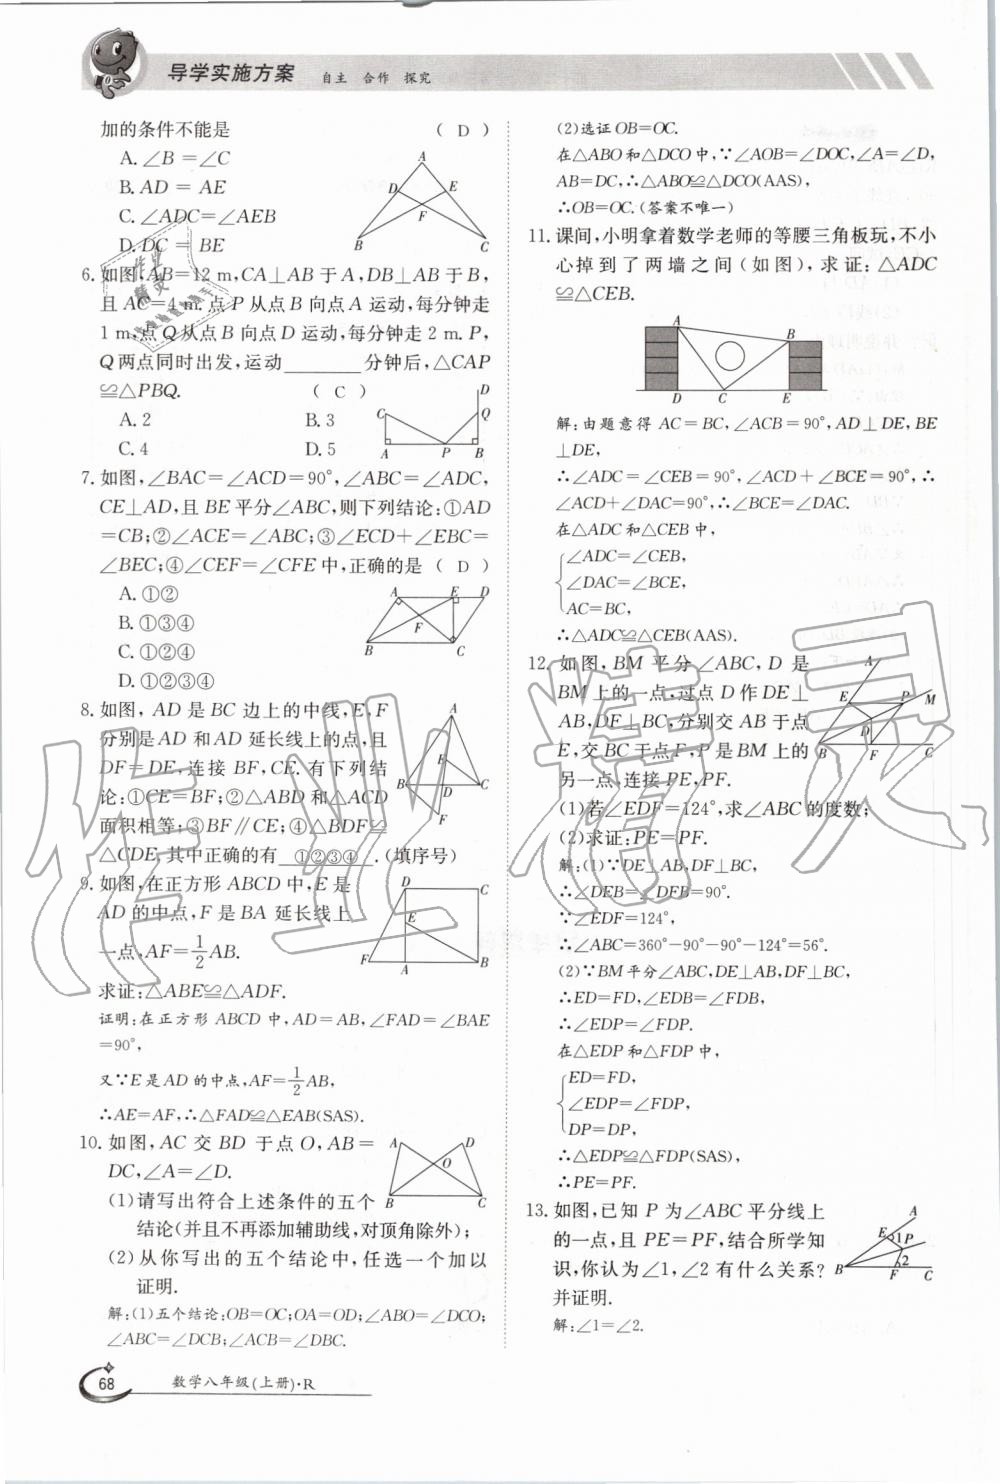 导学实施方案 自主 合作 探究
加的条件不能是 ( D )
A.∠B=∠C
B.AD=AE
C.∠ADC=∠AEB
D.DC=BE
A
D E
F
B C
6.如图,AB=12 m,CA⊥AB于A,DB⊥AB于B,
且AC=4 m.点P从点B向点A运动,每分钟走
1 m,点Q从点B向点D运动,每分钟走2 m.P,
Q两点同时出发,运动________分钟后,△CAP
≌△PBQ. ( C )
A.2 B.3
C.4 D.5
D
C Q
A P B
7.如图,∠BAC=∠ACD=90°,∠ABC=∠ADC,
CE⊥AD,且BE平分∠ABC,则下列结论:①AD
=CB;②∠ACE=∠ABC;③∠ECD+∠EBC=
∠BEC;④∠CEF=∠CFE中,正确的是 ( D )
A.①②
B.①③④
C.①②④
D.①②③④
A E D
F
B C
8.如图,AD是BC边上的中线,E,F
分别是AD和AD延长线上的点,且
DF=DE,连接BF,CE.有下列结
论:①CE=BF;②△ABD和△ACD
面积相等;③BF∥CE;④△BDF≌
△CDE.其中正确的有 ①②③④ .(填序号)
A
E
B C
F
9.如图,在正方形ABCD中,E是
AD的中点,F是BA延长线上
一点,AF=1/2AB.
求证:△ABE≌△ADF.
D C
E
F A B
证明:在正方形ABCD中,AD=AB,∠FAD=∠BAE
=90°,
又∵E是AD的中点,AF=1/2AB,
∴AE=AF,∴△FAD≌△EAB(SAS).
10.如图,AC交BD于点O,AB=
DC,∠A=∠D.
(1)请写出符合上述条件的五个
结论(并且不再添加辅助线,对顶角除外);
(2)从你写出的五个结论中,任选一个加以
证明.
A D
O
B C
解:(1)五个结论:OB=OC;OA=OD;∠ABO=∠DCO;
∠ABC=∠DCB;∠ACB=∠DBC.
(2)选证OB=OC.
在△ABO和△DCO中,∵∠AOB=∠DOC,∠A=∠D,
AB=DC,∴△ABO≌△DCO(AAS),
∴OB=OC.(答案不唯一)
11.课间,小明拿着数学老师的等腰三角板玩,不小
心掉到了两墙之间(如图),求证:△ADC
≌△CEB.
A
B
D C E
解:由题意得AC=BC,∠ACB=90°,AD⊥DE,BE
⊥DE,
∴∠ADC=∠CEB=90°,∠ACD+∠BCE=90°,∴
∠ACD+∠DAC=90°,∴∠BCE=∠DAC.
在△ADC和△CEB中,
∠ADC=∠CEB,
∠DAC=∠BCE,
AC=BC,
∴△ADC≌△CEB(AAS).
12.如图,BM平分∠ABC,D是
BM上的一点,过点D作DE⊥
AB,DF⊥BC,分别交AB于点
E,交BC于点F,P是BM上的
另一点,连接PE,PF.
(1)若∠EDF=124°,求∠ABC的度数;
(2)求证:PE=PF.
A
E P M
D
B F C
解:(1)∵DE⊥AB,DF⊥BC,
∴∠DEB=∠DFB=90°.
∵∠EDF=124°,
∴∠ABC=360°-90°-90°-124°=56°.
(2)∵BM平分∠ABC,DE⊥AB,DF⊥BC,
∴ED=FD,∠EDB=∠FDB,
∴∠EDP=∠FDP.
在△EDP和△FDP中,
ED=FD,
∠EDP=∠FDP,
DP=DP,
∴△EDP≌△FDP(SAS),
∴PE=PF.
13.如图,已知P为∠ABC平分线上
的一点,且PE=PF,结合所学知
识,你认为∠1,∠2有什么关系?
并证明.
A
E 1 P
2
B F C
解:∠1=∠2.
68 数学八年级(上册)·R
作业精灵